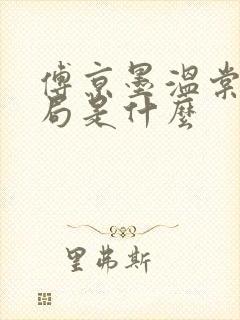 傅京墨温棠
局是什麼
里弗斯